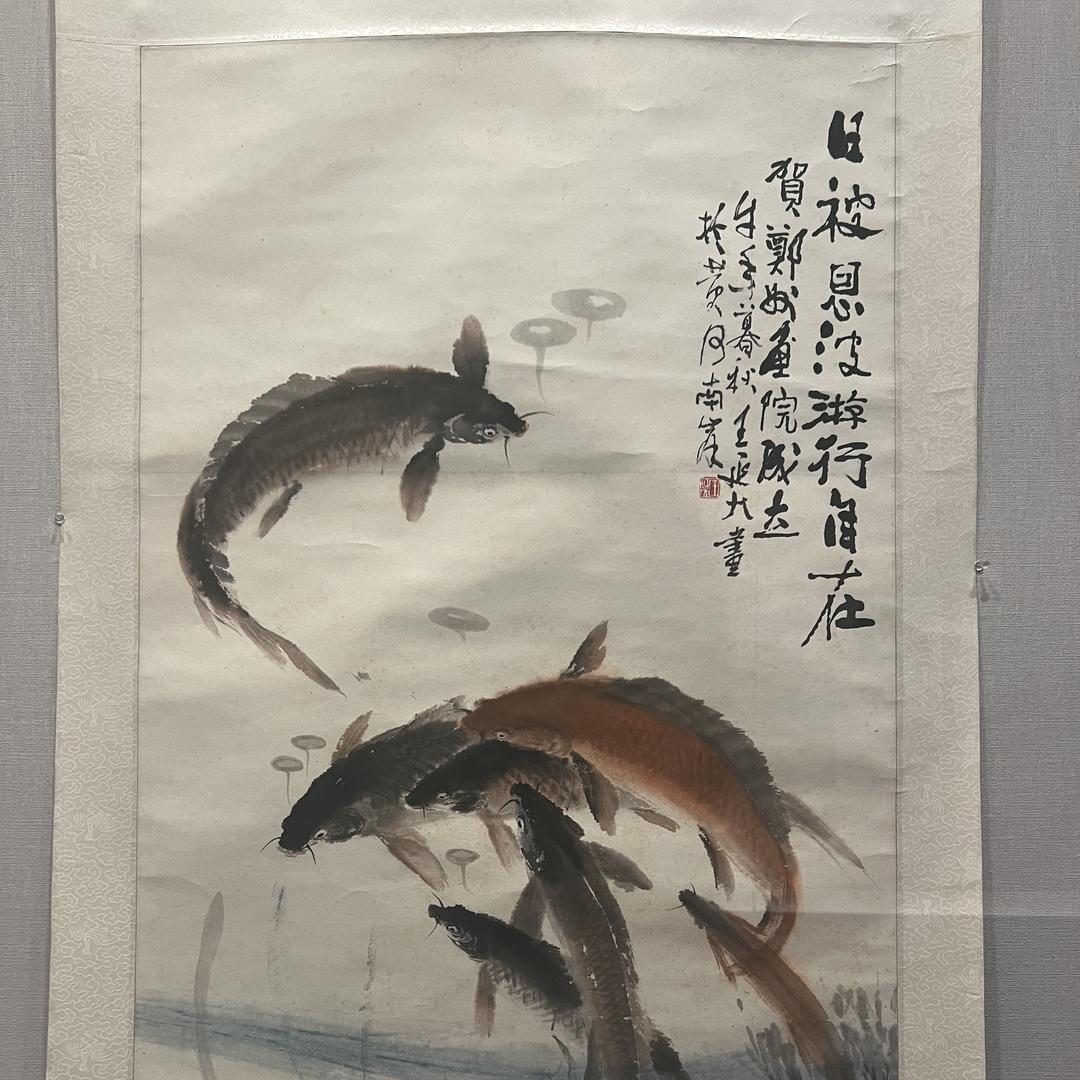 日被恩波游行自在
賀鄭州畫院成立
午年暮秋王兆畫
於黄河南岸